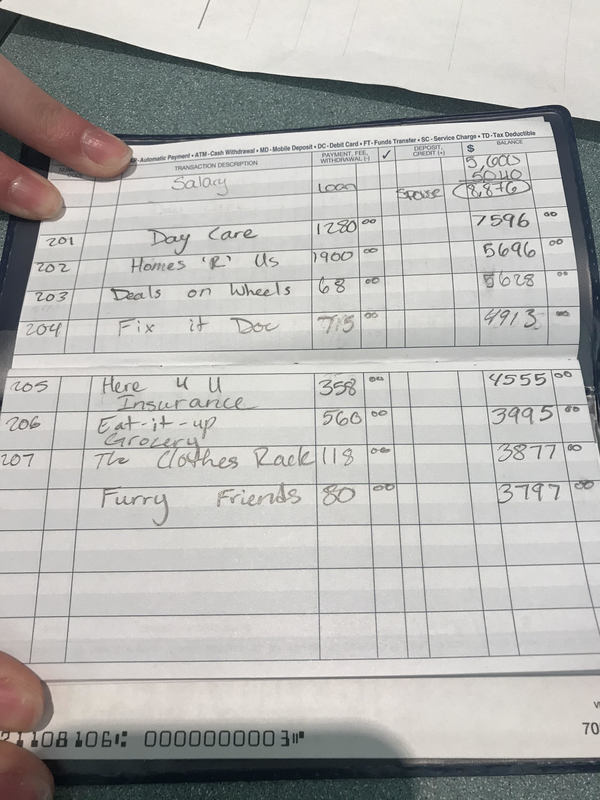 AR-Automatic Payment • ATM-Cash Withdrawal • MD-Mobile Deposit • DC-Debit Card • FT-Funds Transfer • SC-Service Charge • TD-Tax Deductible
TRANSACTION DESCRIPTION PAYMENT, FEE, WITHDRAWAL (-) ✓ DEPOSIT, CREDIT (+) $ BALANCE
5,000
Salary Loan 5040
Spouse 8,876
201 Day Care 1280 00 7596 00
202 Homes 'R' Us 1900 00 5696 00
203 Deals on Wheels 68 00 5628 00
204 Fix it Doc 715 00 4913 00
205 Here 4 U 358 00 4555 00
Insurance
206 Eat-it-up 560 00 3995 00
Grocery
207 The Clothes Rack 118 00 3877 00
Furry Friends 80 00 3797 00
21108106⑆ 0000000003⑈
70